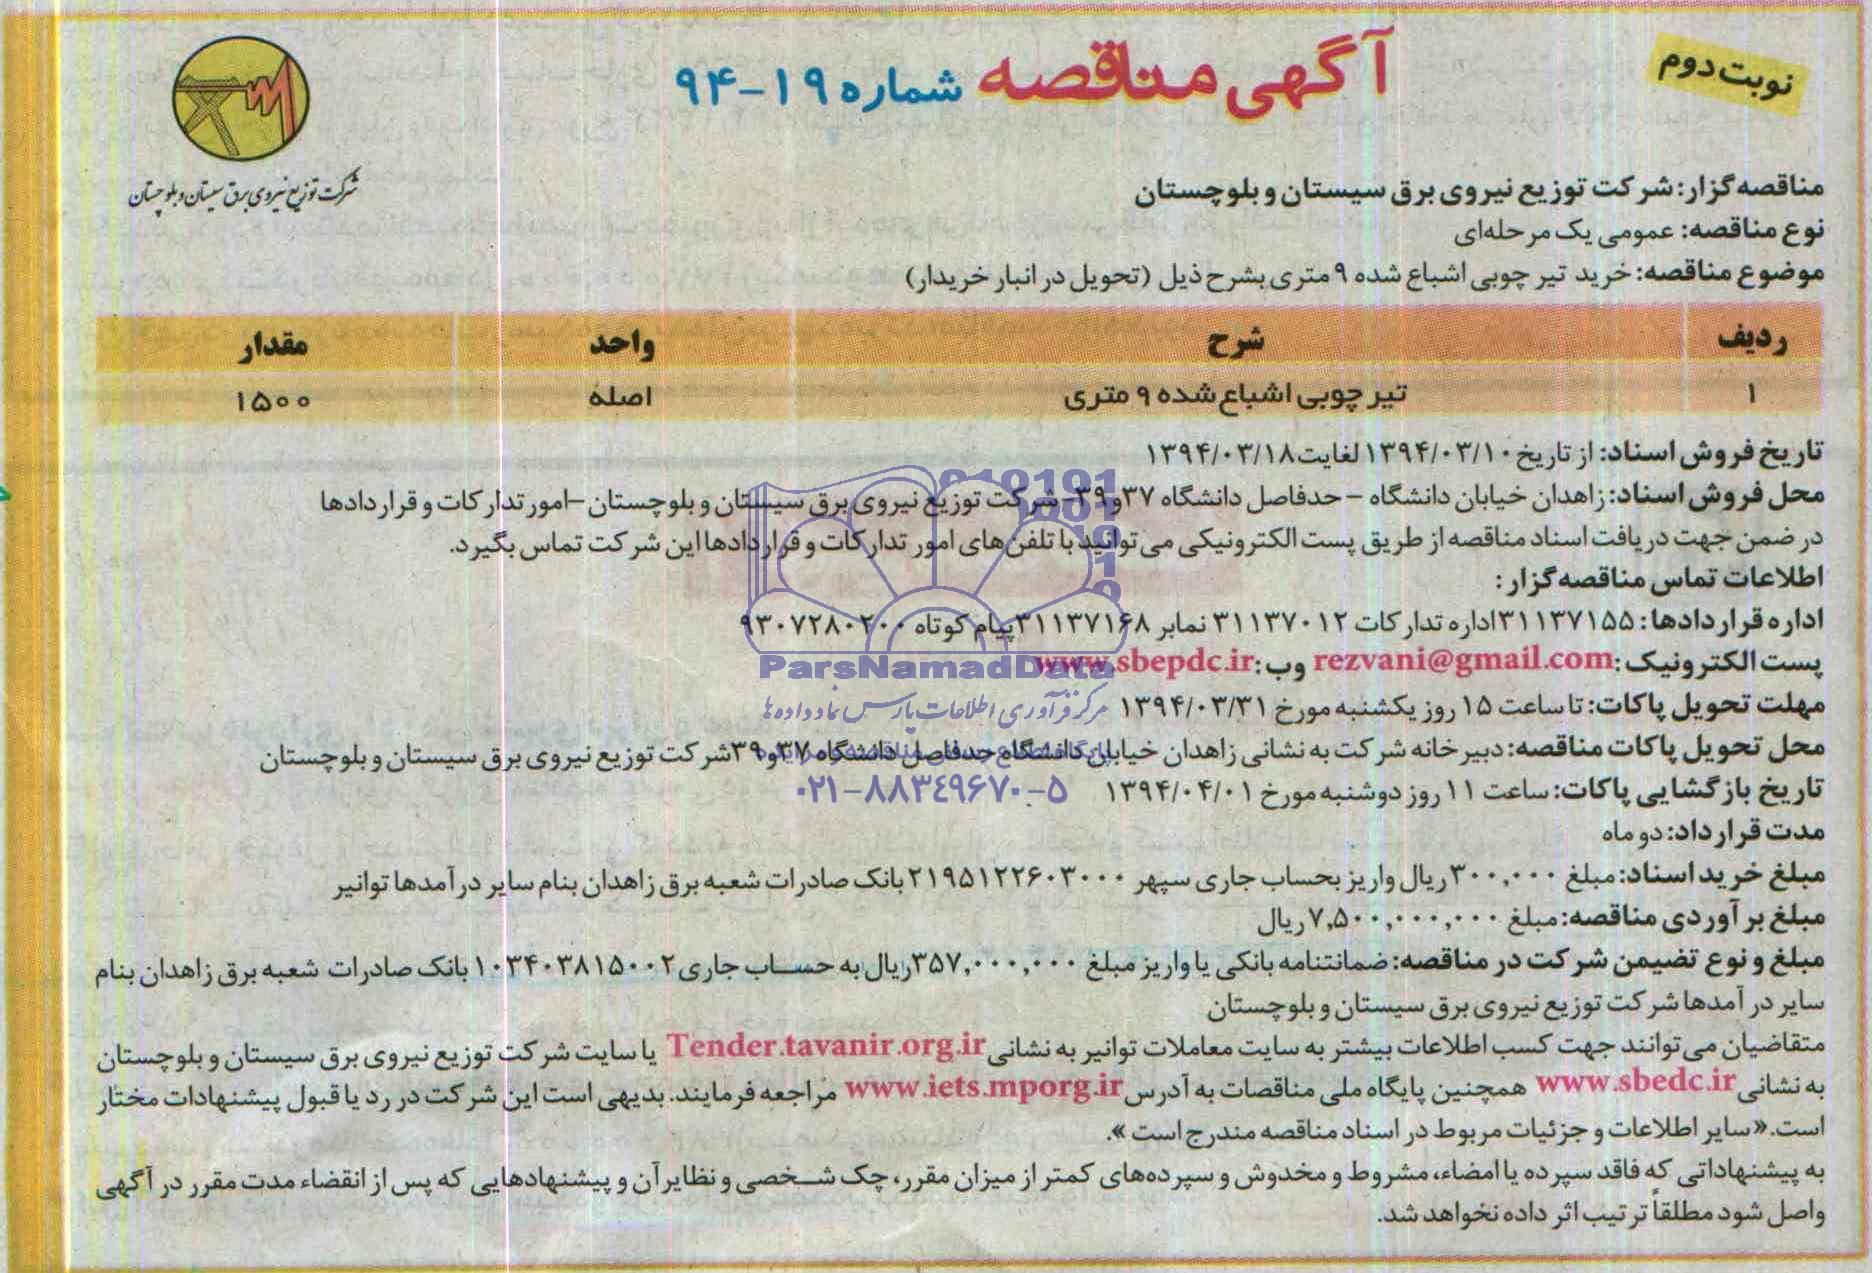 نوبت دوم
آگهی مناقصه شماره ۱۹-۹۴
شرکت توزیع نیروی برق سیستان و بلوچستان
مناقصه گزار: شرکت توزیع نیروی برق سیستان و بلوچستان
نوع مناقصه: عمومی یک مرحله‌ای
موضوع مناقصه: خرید تیر چوبی اشباع شده ۹ متری بشرح ذیل (تحویل در انبار خریدار)
ردیف شرح واحد مقدار
۱ تیر چوبی اشباع شده ۹ متری اصله ۱۵۰۰
تاریخ فروش اسناد: از تاریخ ۱۳۹۴/۰۳/۱۰ لغایت ۱۳۹۴/۰۳/۱۸
محل فروش اسناد: زاهدان خیابان دانشگاه – حدفاصل دانشگاه ۳۷ و ۳۹- شرکت توزیع نیروی برق سیستان و بلوچستان –امور تدارکات و قراردادها
در ضمن جهت دریافت اسناد مناقصه از طریق پست الکترونیکی می توانید با تلفن های امور تدارکات و قراردادها این شرکت تماس بگیرد.
اطلاعات تماس مناقصه گزار:
اداره قراردادها: ۳۱۱۳۷۱۵۵ اداره تدارکات ۳۱۱۳۷۰۱۲ نمابر ۳۱۱۳۷۱۶۸ پیام کوتاه ۹۳۰۷۲۸۰۲۰۰
پست الکترونیک: rezvani@gmail.com وب: www.sbepdc.ir
مهلت تحویل پاکات: تا ساعت ۱۵ روز یکشنبه مورخ ۱۳۹۴/۰۳/۳۱
محل تحویل پاکات مناقصه: دبیرخانه شرکت به نشانی زاهدان خیابان دانشگاه حدفاصل دانشگاه ۳۷ و ۳۹ شرکت توزیع نیروی برق سیستان و بلوچستان
تاریخ بازگشایی پاکات: ساعت ۱۱ روز دوشنبه مورخ ۱۳۹۴/۰۴/۰۱
مدت قرارداد: دو ماه
مبلغ خرید اسناد: مبلغ ۳۰۰,۰۰۰ ریال واریز بحساب جاری سپهر ۲۱۹۵۱۲۲۶۰۳۰۰۰ بانک صادرات شعبه برق زاهدان بنام سایر درآمدها توانیر
مبلغ برآوردی مناقصه: مبلغ ۷,۵۰۰,۰۰۰,۰۰۰ ریال
مبلغ و نوع تضیمن شرکت در مناقصه: ضمانتنامه بانکی یا واریز مبلغ ۳۵۷,۰۰۰,۰۰۰ ریال به حساب جاری ۱۰۳۴۰۳۸۱۵۰۰۲ بانک صادرات شعبه برق زاهدان بنام
سایر در آمدها شرکت توزیع نیروی برق سیستان و بلوچستان
متقاضیان می توانند جهت کسب اطلاعات بیشتر به سایت معاملات توانیر به نشانی Tender.tavanir.org.ir یا سایت شرکت توزیع نیروی برق سیستان و بلوچستان
به نشانی www.sbedc.ir همچنین پایگاه ملی مناقصات به آدرس www.iets.mporg.ir مراجعه فرمایند. بدیهی است این شرکت در رد یا قبول پیشنهادات مختار
است. «سایر اطلاعات و جزئیات مربوط در اسناد مناقصه مندرج است ».
به پیشنهاداتی که فاقد سپرده یا امضاء، مشروط و مخدوش و سپرده‌های کمتر از میزان مقرر، چک شخصی و نظایر آن و پیشنهادهایی که پس از انقضاء مدت مقرر در آگهی
واصل شود مطلقاً ترتیب اثر داده نخواهد شد.
ParsNamadData
مرکز فرآوری اطلاعات پارس نماد داده ها
۰۲۱-۸۸۳۴۹۶۷۰-۵